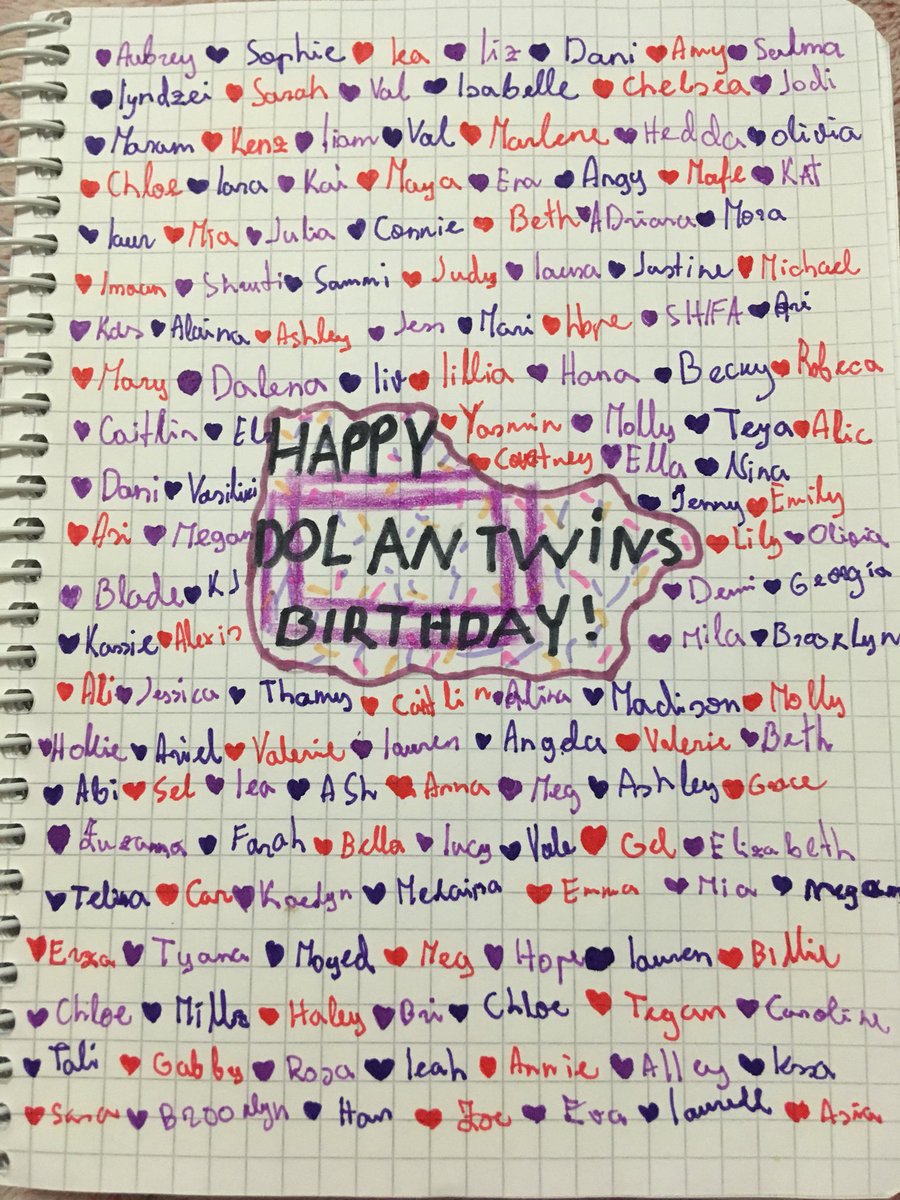 Aubrey Sophie Lea Liz Dani Amy Salma
lyndzei Sarah Val Isabelle Chelsea Jodi
Maram Kenz liam Val Marlene Hedda olivia
Chloe lana Kai Maya Era Angy Mafe KAT
laur Mia Julia Connie Beth ADriana Mora
Imaan Shruti Sammi Judy laura Justine Michael
Alaina Ashley Jess Mari Hope SHIFA Ari
Mary Dalena liv lillia Hana Becky Robeca
Caitlin Yasmin Molly Teya Alic
HAPPY
Courtney Ella Nina
Dani Vasiliki Jenny Emily
Ari Megan Lily Olivia
DOLAN TWINS
Blade KJ Demi Georgia
BIRTHDAY!
Kassie Alexis Mila Brooklyn
Ali Jessica Thamy Caitlin Alina Madison Molly
Hollie Ariel Valerie lauren Angela Valerie Beth
Abi Sel lea ASh Anna Meg Ashley Grace
Zuzanna Farah Bella lucy Vale Gel Elizabeth
Telina Cam Kaedyn Mekaina Emma Mia Megan
Tyana Moyed Meg Hope lauren Billie
Chloe Mills Haley Bri Chloe Tegan Caroline
Tali Gabby Rosa leah Annie Alley
Sara Brooklyn Han Zoe Eva Asia